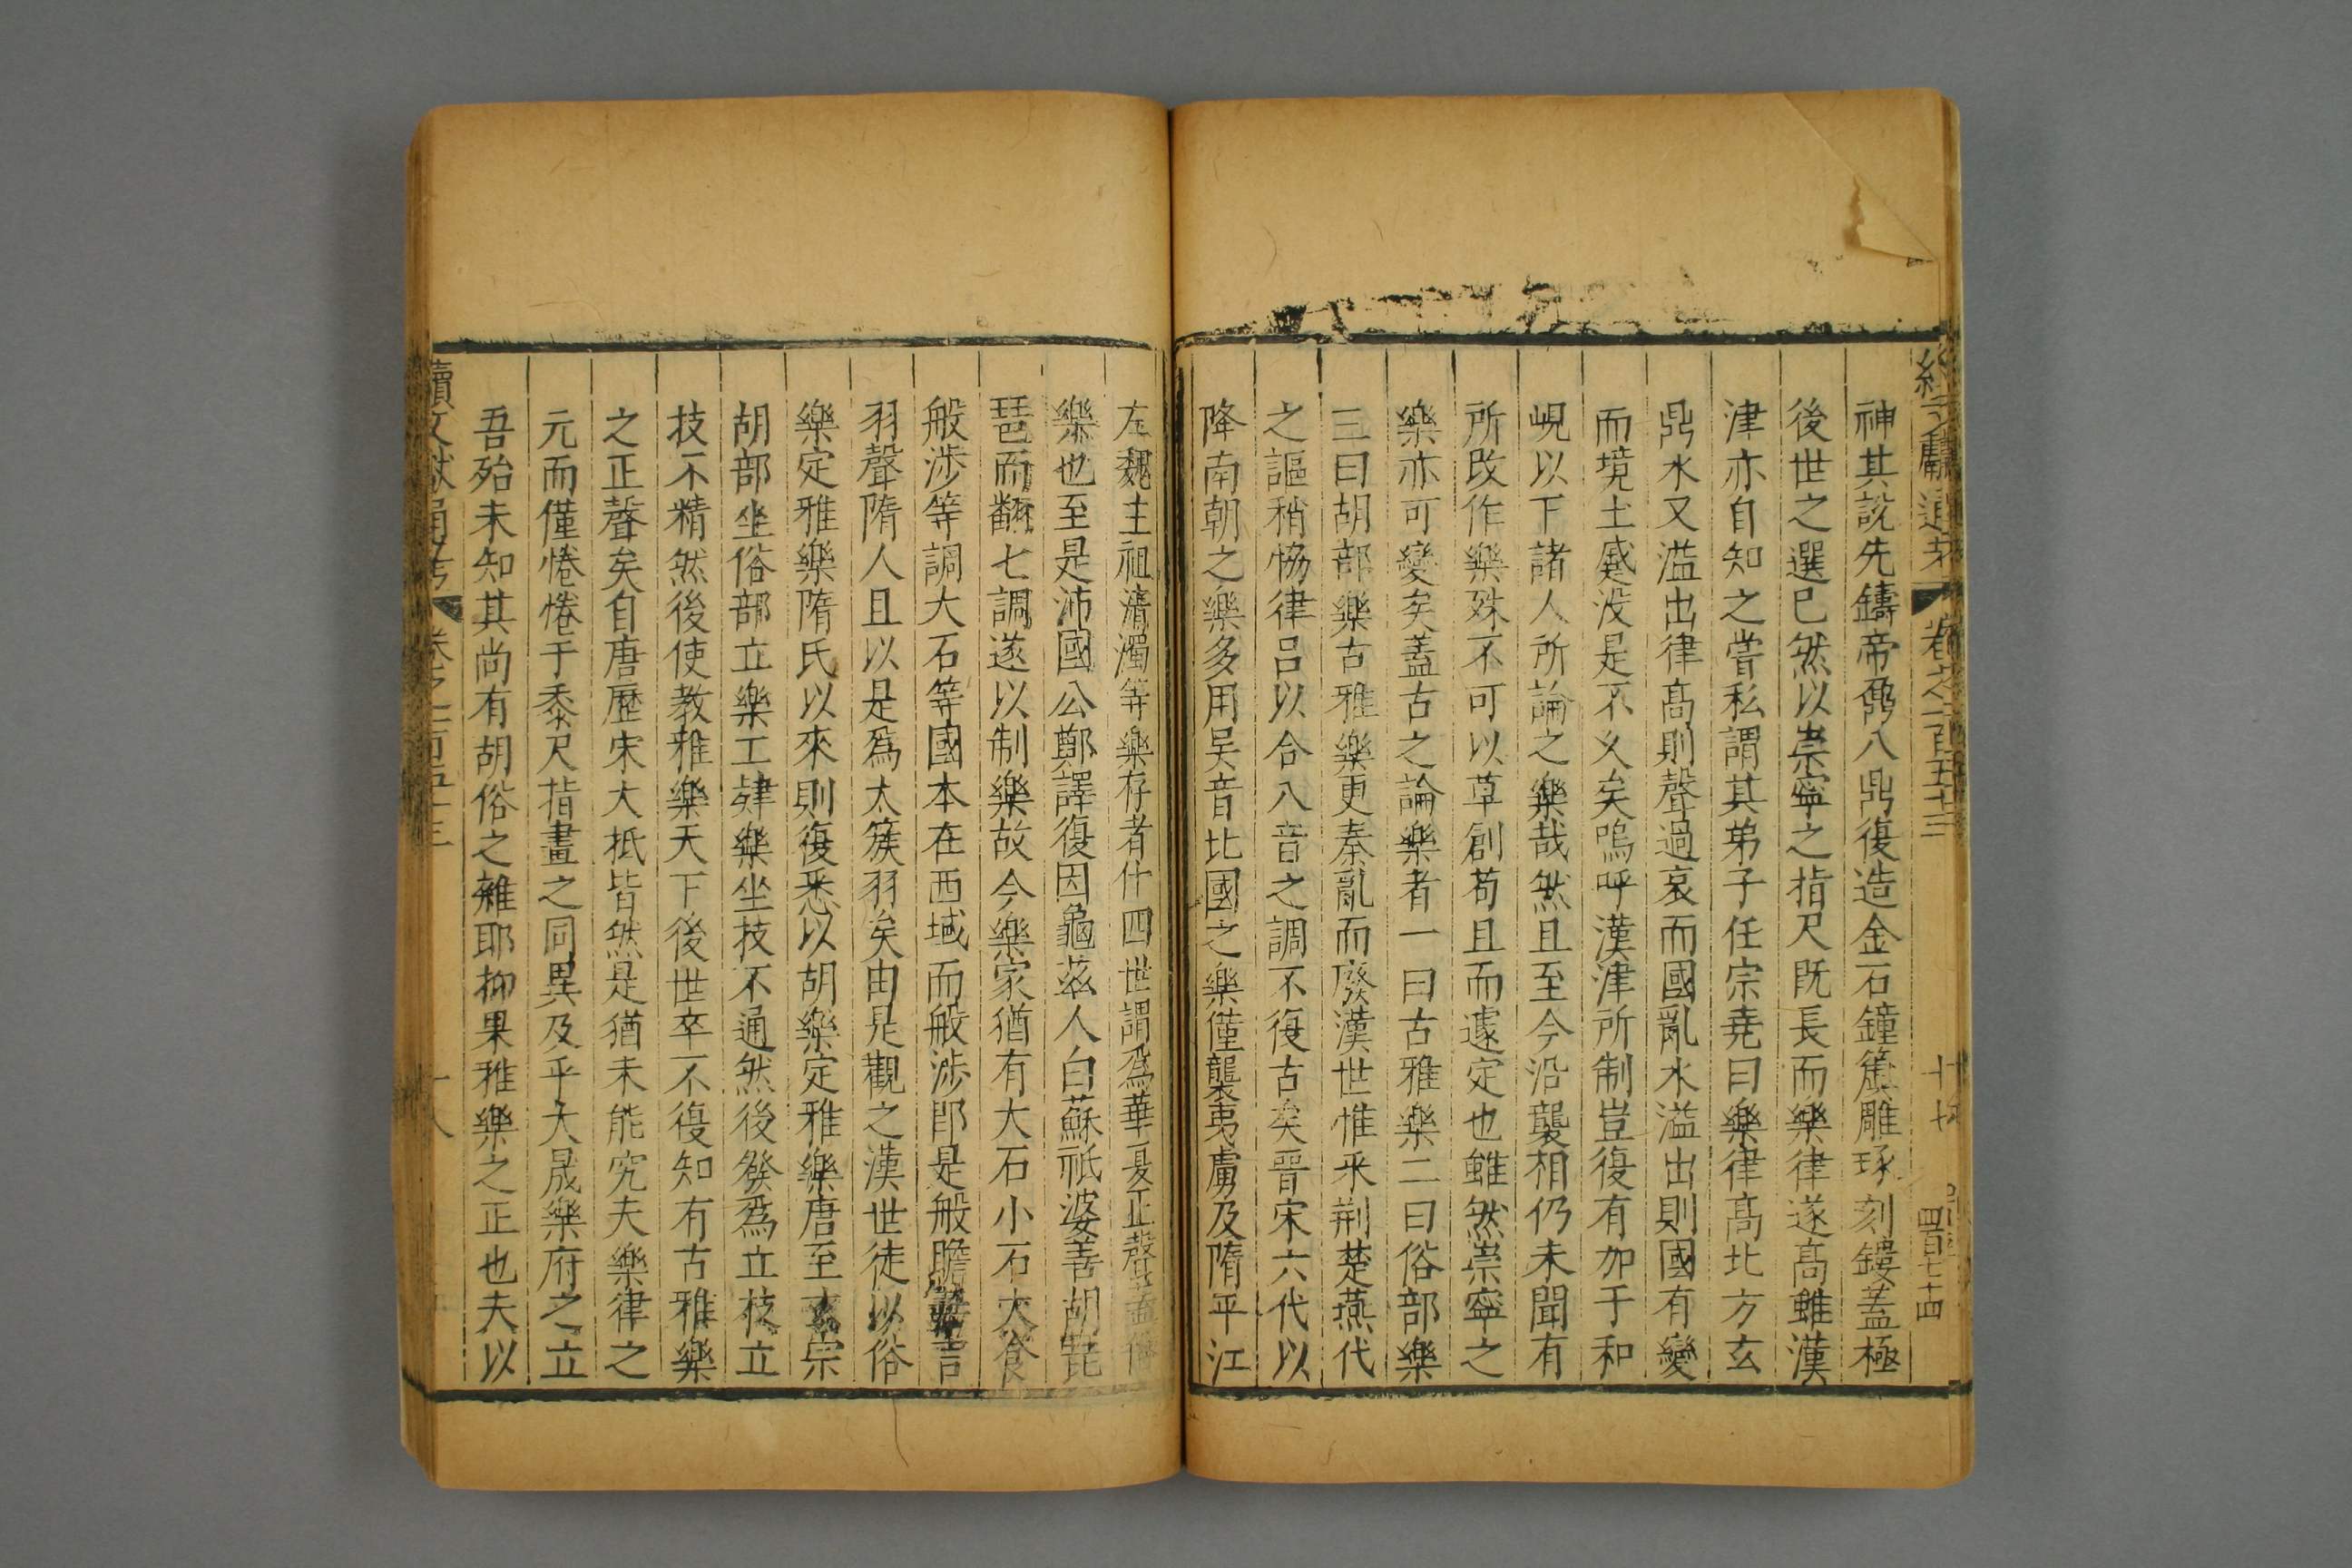 續文獻通考 卷之一百五十三 十七
神其說先鑄帝鼐八鼎復造金石鐘簴雕琢刻鏤蓋極
後世之選已然以崇寧之指尺既長而樂律遂高雖漢
津亦自知之嘗私謂其弟子任宗堯曰樂律高北方玄
鼎水又溢出律高則聲過哀而國亂水溢出則國有變
而境土蹙没是不乆矣嗚呼漢津所制豈復有加于和
峴以下諸人所論之樂哉然且至今沿襲相仍未聞有
所改作樂殊不可以草創苟且而遽定也雖然崇寧之
樂亦可變矣蓋古之論樂者一曰古雅樂二曰俗部樂
三曰胡部樂古雅樂更秦亂而廢漢世惟采荆楚燕代
之謳稍協律呂以合八音之調不復古矣晋宋六代以
降南朝之樂多用吴音北國之樂僅襲夷虜及隋平江
左魏主祖清濁等樂存者什四世謂為華夏正聲蓋俗
樂也至是沛國公鄭譯復因龜兹人白蘇祇婆善胡琵
琶而翻七調遂以制樂故今樂家猶有大石小石大食
般涉等調大石等國本在西域而般涉即是般瞻華言
羽聲隋人且以是為太簇羽矣由是觀之漢世徒以俗
樂定雅樂隋氏以來則復悉以胡樂定雅樂唐至玄宗
胡部坐俗部立樂工肄樂坐技不通然後發為立技立
技不精然後使教雅樂天下後世卒不復知有古雅樂
之正聲矣自唐歷宋大抵皆然是猶未能究夫樂律之
元而僅惓惓于黍尺指畫之同異及乎大晟樂府之立
吾殆未知其尚有胡俗之雜耶抑果雅樂之正也夫以
續文獻通考 卷之一百五十三 十八